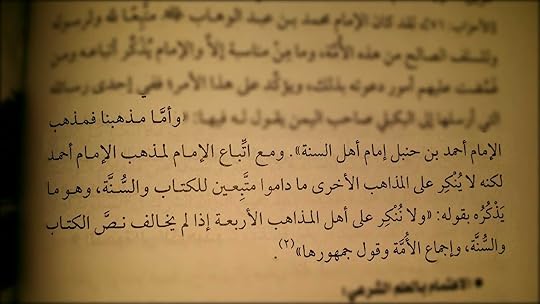 الأحزاب: ٧١]. لقد كان الإمام محمد بن عبد الوهاب متَّبعًا لله ولرسوله
وللسلف الصالح من هذه الأمَّة، وما مِنْ مناسبة إلاَّ والإمام يُذَكِّر أتباعه ومن
عليهم أمور دعوته بذلك، ويؤكِّد على هذا الأمر؛ ففي إحدى رسائله
التي أرسلها إلى البكبلي صاحب اليمن يقول له فيها: «وأمَّا مذهبنا فمذهب
الإمام أحمد بن حنبل إمام أهل السنة». ومع اتِّباع الإمام لمذهب الإمام أحمد
لكنه لا يُنْكِر على المذاهب الأخرى ما داموا متَّبِعين للكتاب والسُّنَّة، وهو ما
يَذْكُرُه بقوله: «ولا نُنْكِر على أهل المذاهب الأربعة إذا لم يخالف نصَّ الكتاب
والسُّنَّة، وإجماع الأمَّة وقول جمهورها»(٢).
• الاعتصام بالعلم الشرعي: